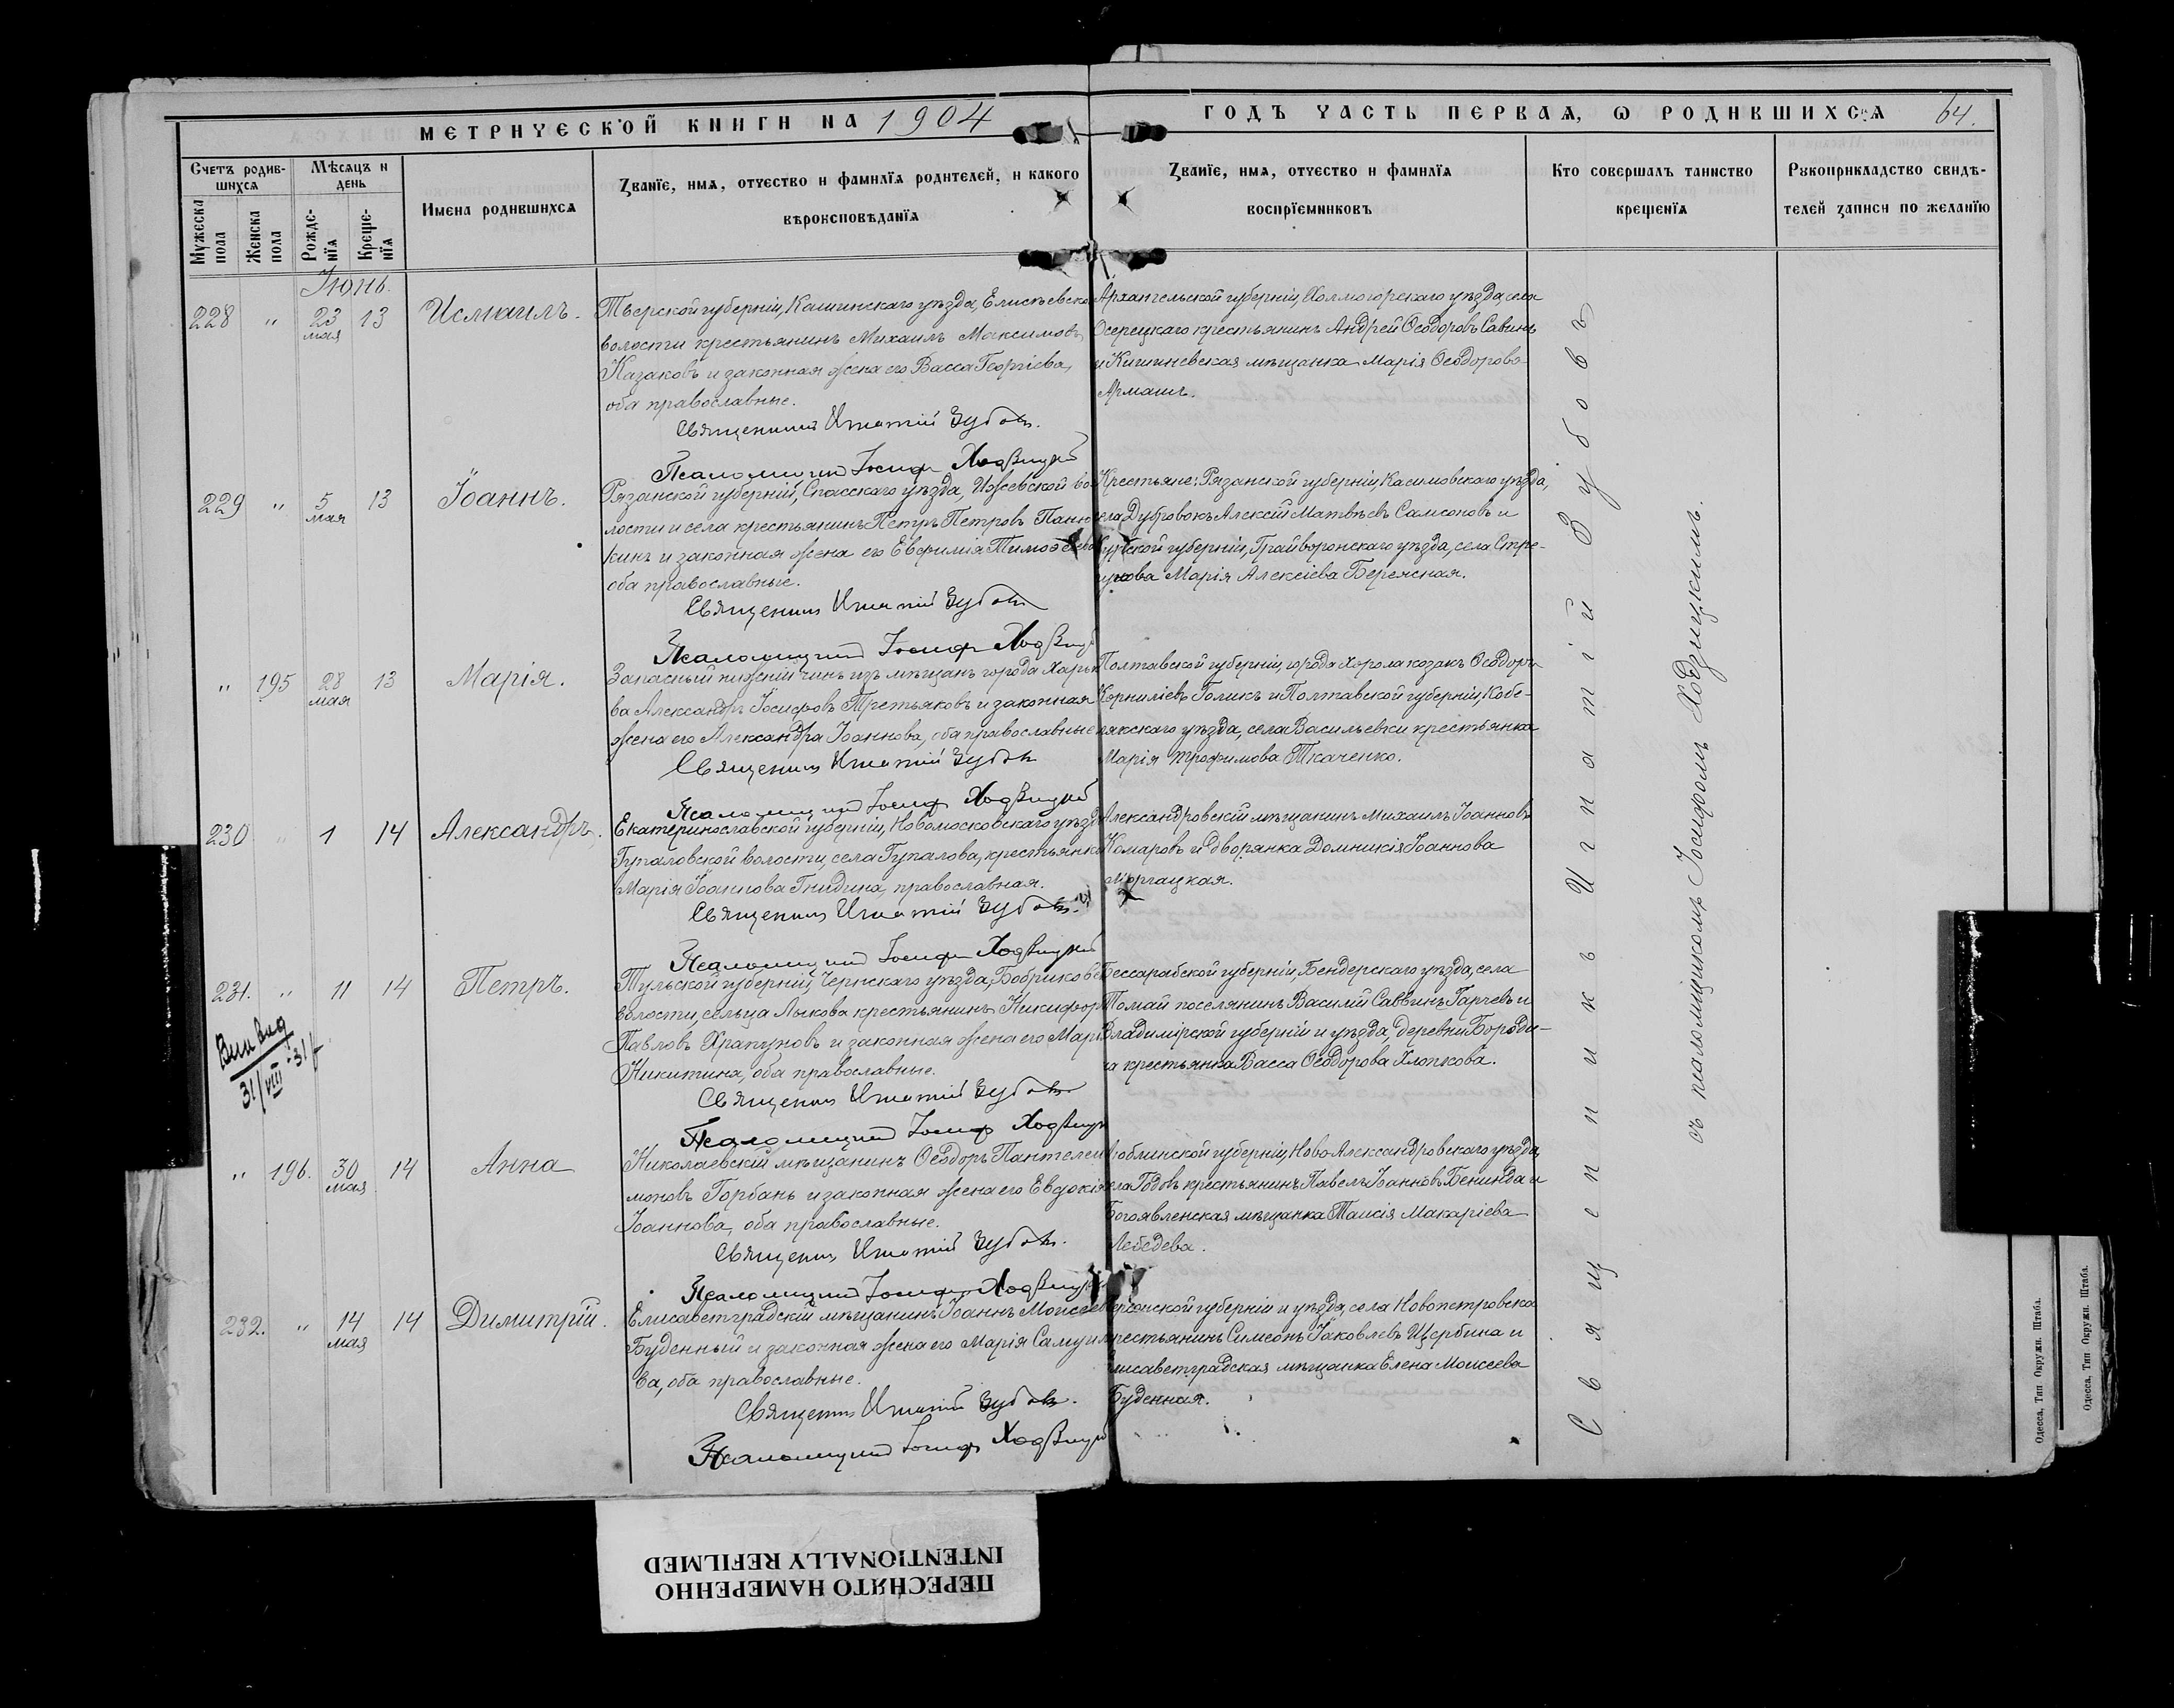 МЕТРИЧЕСКОЙ КНИГИ НА 1904
ГОДЪ ЧАСТЬ ПЕРВАЯ, Ѡ РОДИВШИХСЯ 64.
Счетъ родив-
шихся
Мужеска
пола
Женска
пола
Мѣсяцъ и
день
Рожде-
нїя
Креще-
нїя
Имена родившихся
Званїе, имя, отчество и фамилїя родителей, и какого
вѣроисповѣданїя
Званїе, имя, отчество и фамилїя
воспрїемниковъ
Кто совершалъ таинство
крещенїя
Рукоприкладство свидѣ-
телей записи по желанїю
Іюнь.
228 " 23 мая 13
Исмаилъ.
Тверской губерніи, Кашинскаго уѣзда, Елисѣевско
волости крестьянинъ Михаилъ Максимовъ
Казаковъ и законная жена его Васса Георгіева,
оба православные.
Священникъ Игнатій Зубовъ.
Псаломщикъ Іосифъ Ходзицкій
Архангельской губерніи, Холмогорскаго уѣзда, села
Осерецкаго крестьянинъ Андрей Ѳеодоровъ Савинъ
и Кишиневская мѣщанка Марія Ѳеодорова
Армашъ.
229 " 5 мая 13
Іоаннъ.
Рязанской губерніи, Спасскаго уѣзда, Ижевской во
лости и села крестьянинъ Петръ Петровъ Паню
кинъ и законная жена его Евфимія Тимоѳеева
оба православные.
Священникъ Игнатій Зубовъ
Псаломщикъ Іосифъ Ходзицк
Крестьяне: Рязанской губерніи, Касимовскаго уѣзда,
села Дубровокъ Алексій Матвѣевъ Самсоновъ и
Курской губерніи, Грайворонскаго уѣзда, села Стре-
Марія Алексіева Бережная.
" 195 28 мая 13
Марія.
Запасный нижній чинъ изъ мѣщанъ города Харько
ва Александръ Іосифовъ Третьяковъ и законная
жена его Александра Іоаннова, оба православные
Священникъ Игнатій Зубовъ
Псаломщикъ Іосифъ Ходзицкій
Полтавской губерніи, города Хорола козакъ Ѳеодоръ
Корниліевъ Голикъ и Полтавской губерніи, Кобе-
лякскаго уѣзда, села Васильевки крестьянка
Марія Трофимова Ткаченко.
230 " 1 14
Александръ.
Екатеринославской губерніи, Новомосковскаго уѣзда
Гупаловской волости, села Гупалова, крестьянка
Марія Іоаннова Гнидина, православная.
Священникъ Игнатій Зубовъ.
Псаломщикъ Іосифъ Ходзицкій
Александровскій мѣщанинъ Михаилъ Іоанновъ
Комаровъ и дворянка Домникія Іоаннова
231. " 11 14
31/VIII-31
Петръ.
Тульской губерніи, Чернскаго уѣзда, Бобриков
волости, сельца Лыкова крестьянинъ Никифоръ
Павловъ Храпуновъ и законная жена его Марі
Никитина, оба православные.
Священникъ Игнатій Зубовъ
Псаломщикъ Іосифъ Ходзицк
Бессарабской губерніи, Бендерскаго уѣзда, села
Томай поселянинъ Василій Саввинъ Гарчевъ и
Владимірской губерніи и уѣзда, деревни Бороди-
на крестьянка Васса Ѳеодорова Хлопкова.
" 196. 30 мая 14
Анна
Николаевскій мѣщанинъ Ѳеодоръ Пантелеи
моновъ Горбань и законная жена его Евдокія
Іоаннова, оба православные.
Священникъ Игнатій Зубовъ.
Псаломщикъ Іосифъ Ходзицк
Люблинской губерніи, Ново Александровскаго уѣзда,
села Годовъ крестьянинъ Павелъ Іоанновъ Бенинда и
Богоявленская мѣщанка Таисія Макаріева
Лебедева.
232. " 14 мая 14
Димитрій.
Елисаветградскій мѣщанинъ Іоаннъ Моисеев
Буденный и законная жена его Марія Самуил
ва, оба православные.
Священникъ Игнатій Зубовъ.
Псаломщикъ Іосифъ Ходзицкій
Херсонской губерніи и уѣзда, села Новопетровска
крестьянинъ Симеонъ Іаковлевъ Щербина и
Елисаветградская мѣщанка Елена Моисеева
Буденная.
Священникъ Игнатій Зубовъ
съ псаломщикомъ Іосифомъ Ходзицкимъ.
Одесса, Тип Окружн. Штаба.
Одесса, Тип Окружн. Штаба.
ПЕРЕСНЯТО НАМЕРЕННО
INTENTIONALLY REFILMED